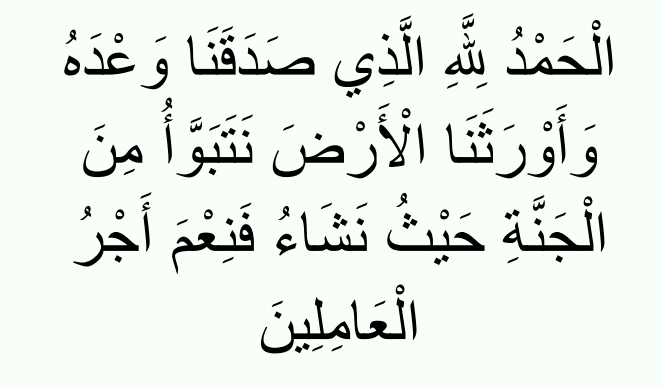 الْحَمْدُ لِلَّهِ الَّذِي صَدَقَنَا وَعْدَهُ
وَأَوْرَثَنَا الْأَرْضَ نَتَبَوَّأُ مِنَ
الْجَنَّةِ حَيْثُ نَشَاءُ فَنِعْمَ أَجْرُ
الْعَامِلِينَ